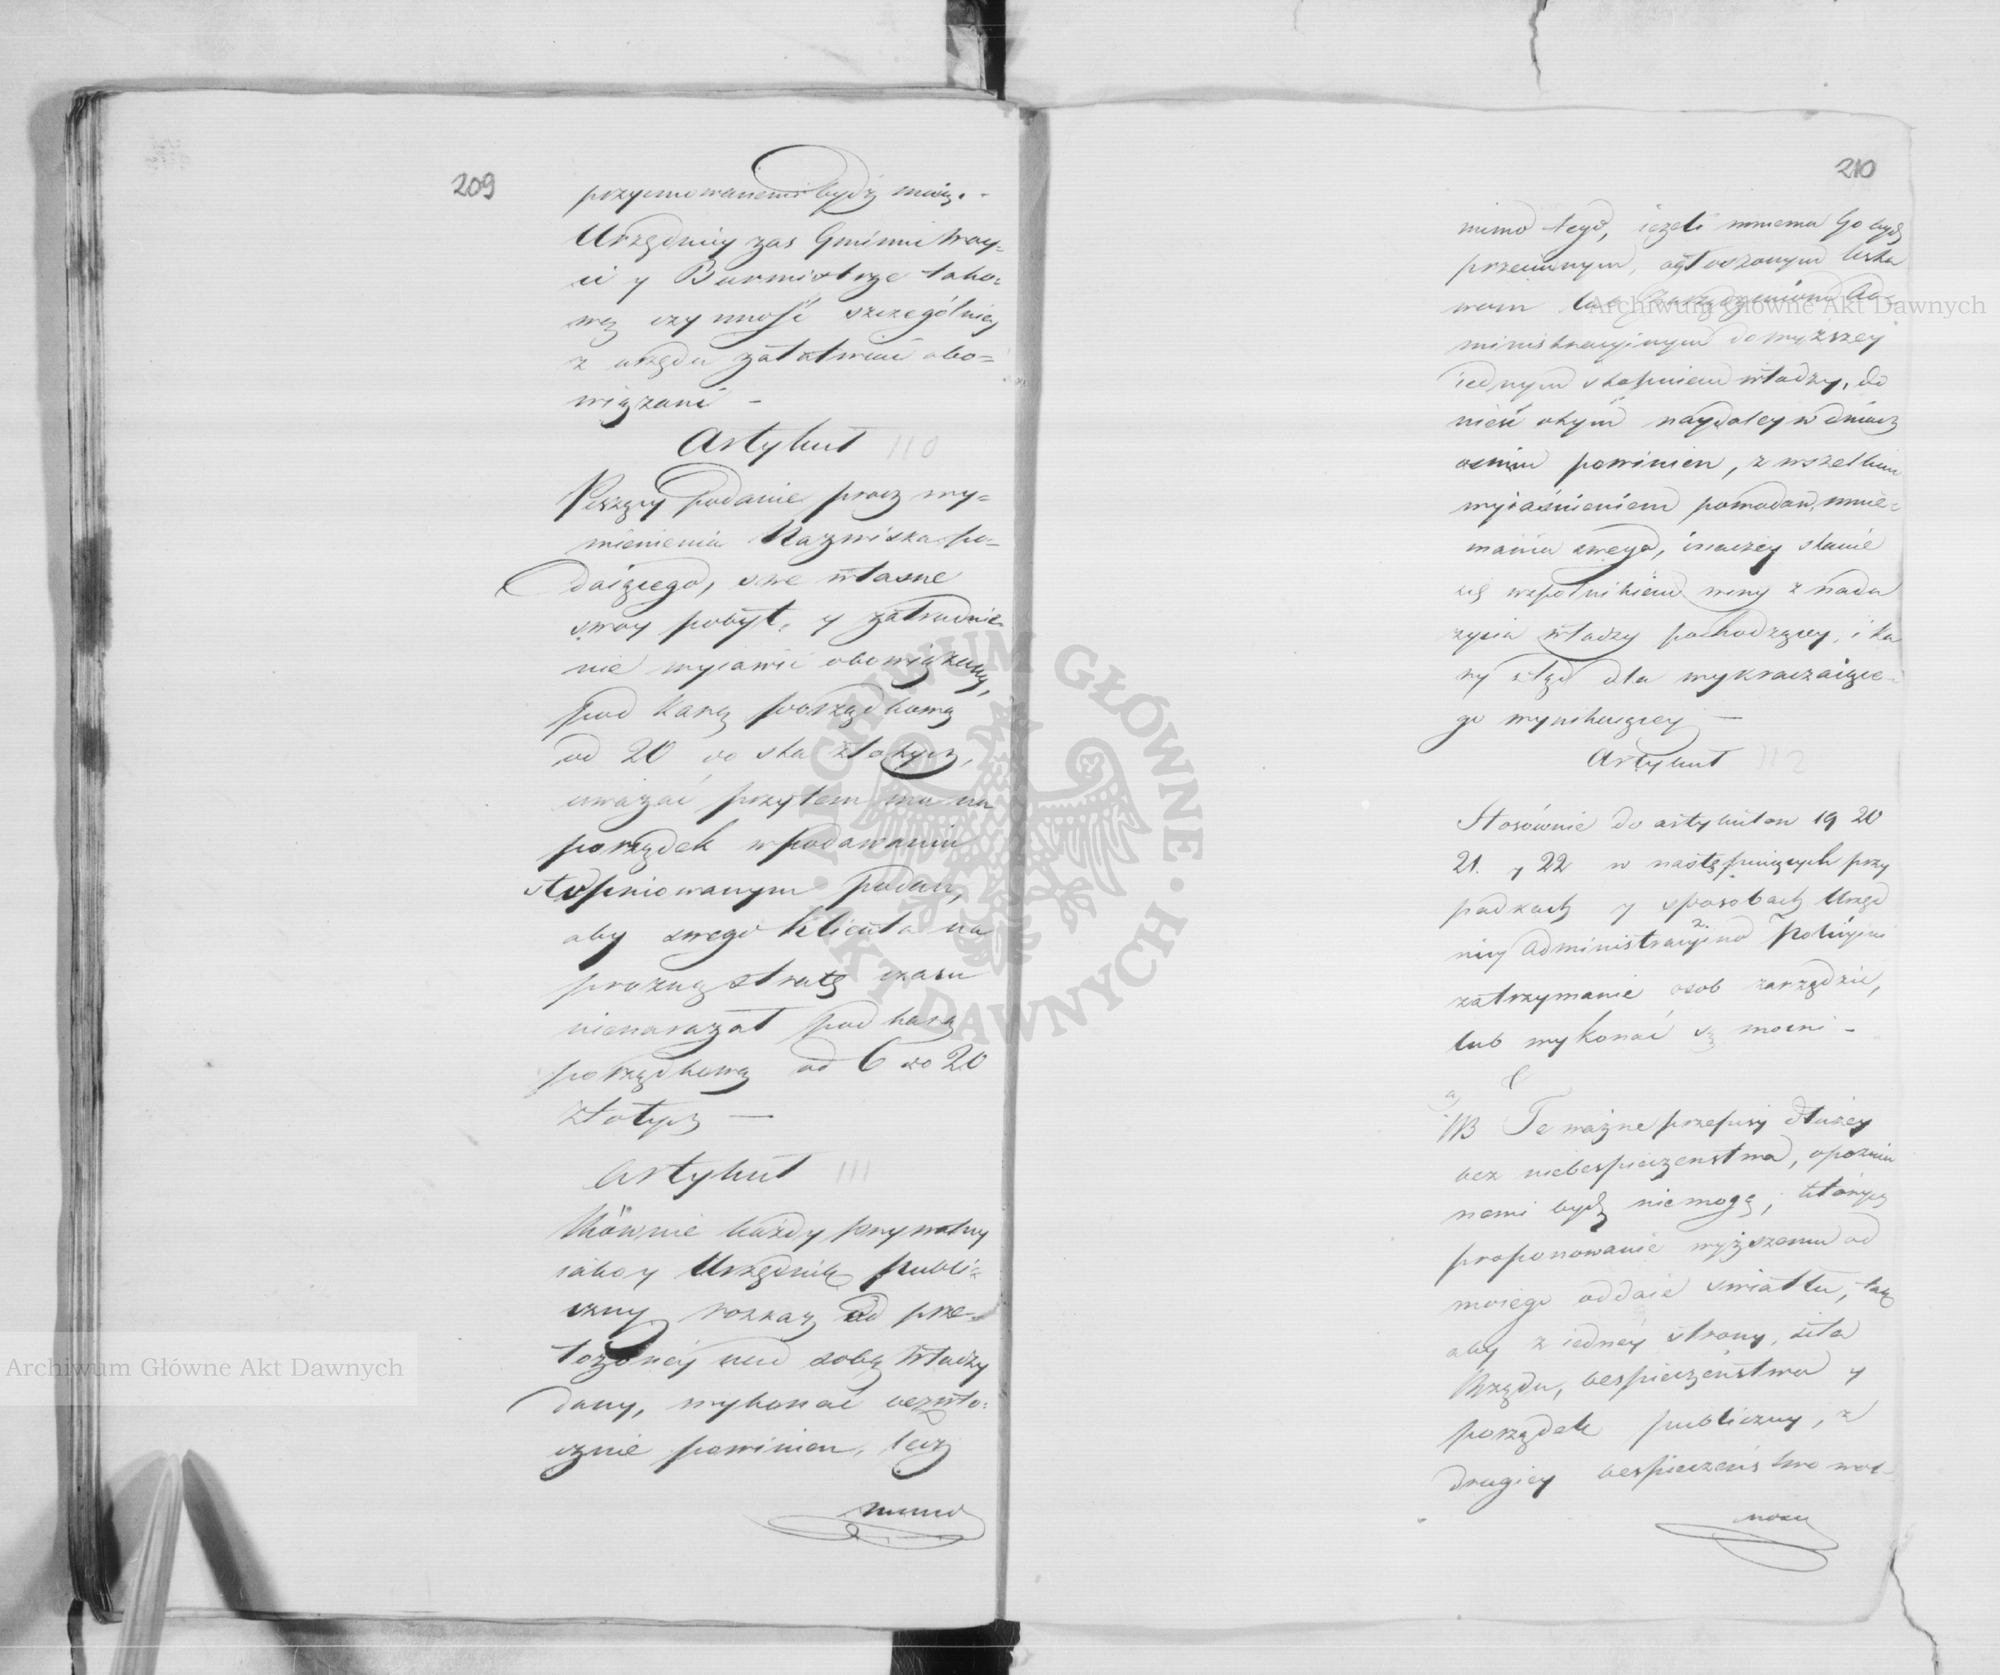 209
przyimowanemi bydź maią. -
Urzędnicy zas Gminni Woy=
ci y Burmistrze tako=
wą czynność szczególniey
z urzędu załatwiać obo=
wiązani -
Artykuł 110
Piszący podanie procz wy=
mienienia Nazwiska po=
daiącego, swe własne
swoy pobyt, y zatrudnie
nie wyiawić obowiązany,
pod karą porządkową
od 20 do sta złotych,
uważać przytem ma na
porządek w podawaniu
stopniowanym podań,
aby swego klienta na
prożną stratę czasu
nienarażał pod karą
porządkową od 6 do 20
złotych —
Artykuł 111
Rownie każdy prywatny
iako y Urzędnik publi=
czny rozkaz od prze=
łożoney nad sobą Władzy
dany, wykonać bezwło=
cznie powinien, lecz
mimo
210
mimo tego, ieżeli mniema go bydź
przeciwnym, ogłoszonym Usta
wom lub Urządzeniom Ad=
ministracyinym do wyższey
iednym stopniem władzy, do
nieść o tym naydaley w dniach
osmiu powinien, z wszelkim
wyiaśnieniem powodow, mnie=
mania swego, inaczey stanie
się wspolnikiem winy z nadu
życia władzy pochodzącey, i ka
ry ztąd dla wykraczaiące=
go wynikaiącey —
Artykuł 112
Stosownie do artykułow 19 20
21. y 22 w następuiących przy
padkach y sposobach Urzęd
nicy administracyino Policyini
zatrzymanie osob zarządzić,
lub wykonać są mocni -
a
NB Te ważne przepisy dłużey
bez niebespieczenstwa, opoznia
nemi bydź niemogą; ktorych
proponowanie wyższemu od
moiego oddaie swiatłu, tak
aby z iedney strony, siła
Rządu, bespieczeństwo y
porządek publiczny, z
drugiey bespieczeństwo wol-
nosci
Archiwum Główne Akt Dawnych
Archiwum Główne Akt Dawnych
ARCHIWUM GŁÓWNE · AKT DAWNYCH ·